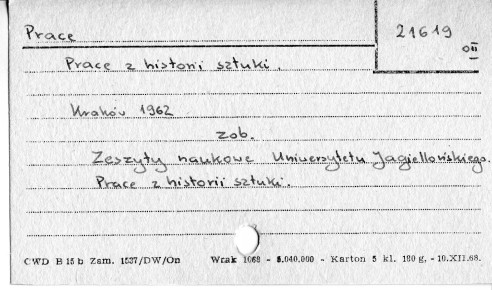 Prace
21619
OII
Prace z historii sztuki.
Kraków 1962
zob.
Zeszyty naukowe Uniwersytetu Jagiellońskiego.
Prace z historii sztuki.
CWD B 15 b Zam. 1537/DW/On Wrak 1068 - 5.040.000 - Karton 5 kl. 180 g. - 10.XII.68.